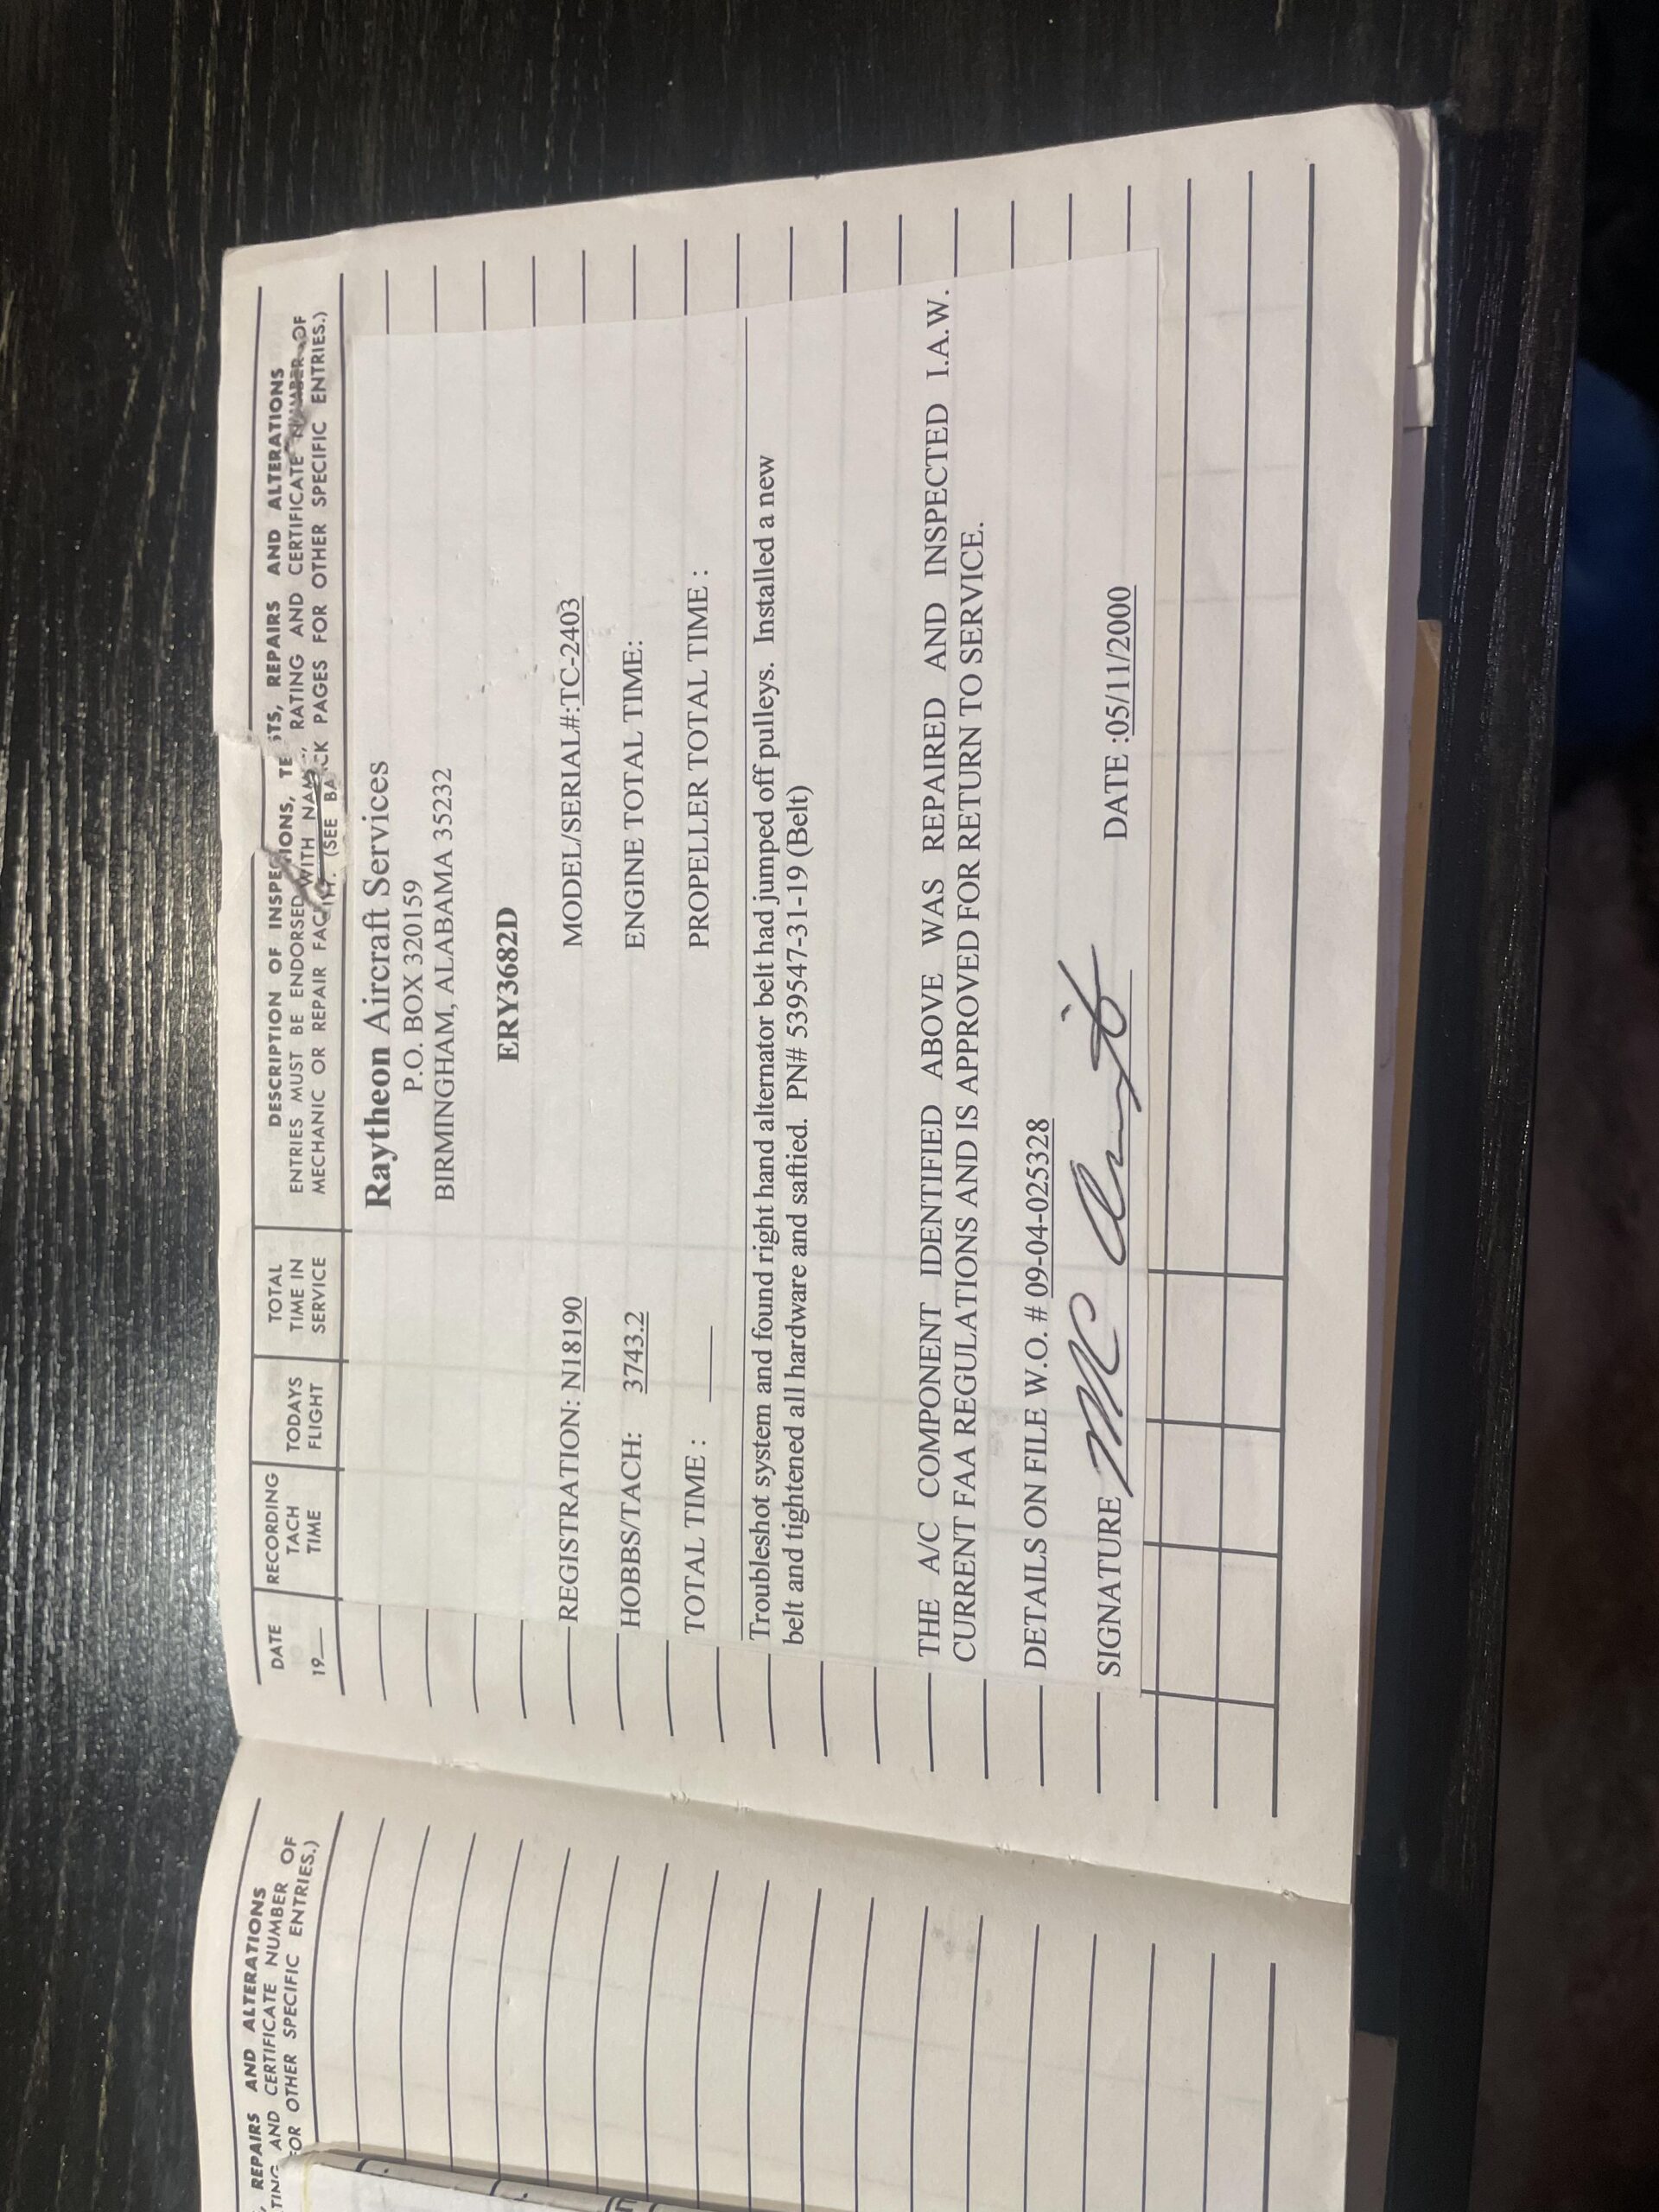 REPAIRS AND ALTERATIONS
AND CERTIFICATE NUMBER OF
FOR OTHER SPECIFIC ENTRIES.)
DATE
19
RECORDING
TACH
TIME
TODAYS
FLIGHT
TOTAL
TIME IN
SERVICE
DESCRIPTION OF INSPECTIONS, TESTS, REPAIRS AND ALTERATIONS
ENTRIES MUST BE ENDORSED WITH NAME, RATING AND CERTIFICATE NUMBER OF
MECHANIC OR REPAIR FACILITY. (SEE BACK PAGES FOR OTHER SPECIFIC ENTRIES.)
Raytheon Aircraft Services
P.O. BOX 320159
BIRMINGHAM, ALABAMA 35232
ERY3682D
REGISTRATION: N18190 MODEL/SERIAL#:TC-2403
HOBBS/TACH: 3743.2 ENGINE TOTAL TIME:
TOTAL TIME : PROPELLER TOTAL TIME :
Troubleshot system and found right hand alternator belt had jumped off pulleys. Installed a new
belt and tightened all hardware and saftied. PN# 539547-31-19 (Belt)
THE A/C COMPONENT IDENTIFIED ABOVE WAS REPAIRED AND INSPECTED I.A.W.
CURRENT FAA REGULATIONS AND IS APPROVED FOR RETURN TO SERVICE.
DETAILS ON FILE W.O. # 09-04-025328
SIGNATURE DATE :05/11/2000